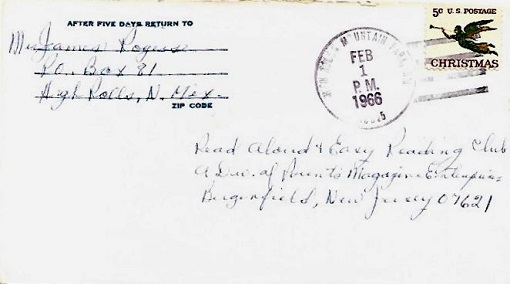 AFTER FIVE DAYS RETURN TO
James
P.O. Box 81
High Rolls, N. Mex.
ZIP CODE
FEB
1
P.M.
1966
5¢ U.S. POSTAGE
CHRISTMAS
Read Aloud & Easy Reading Club
A Div. of Parents Magazine Enterprises
Bergenfield, New Jersey 07621